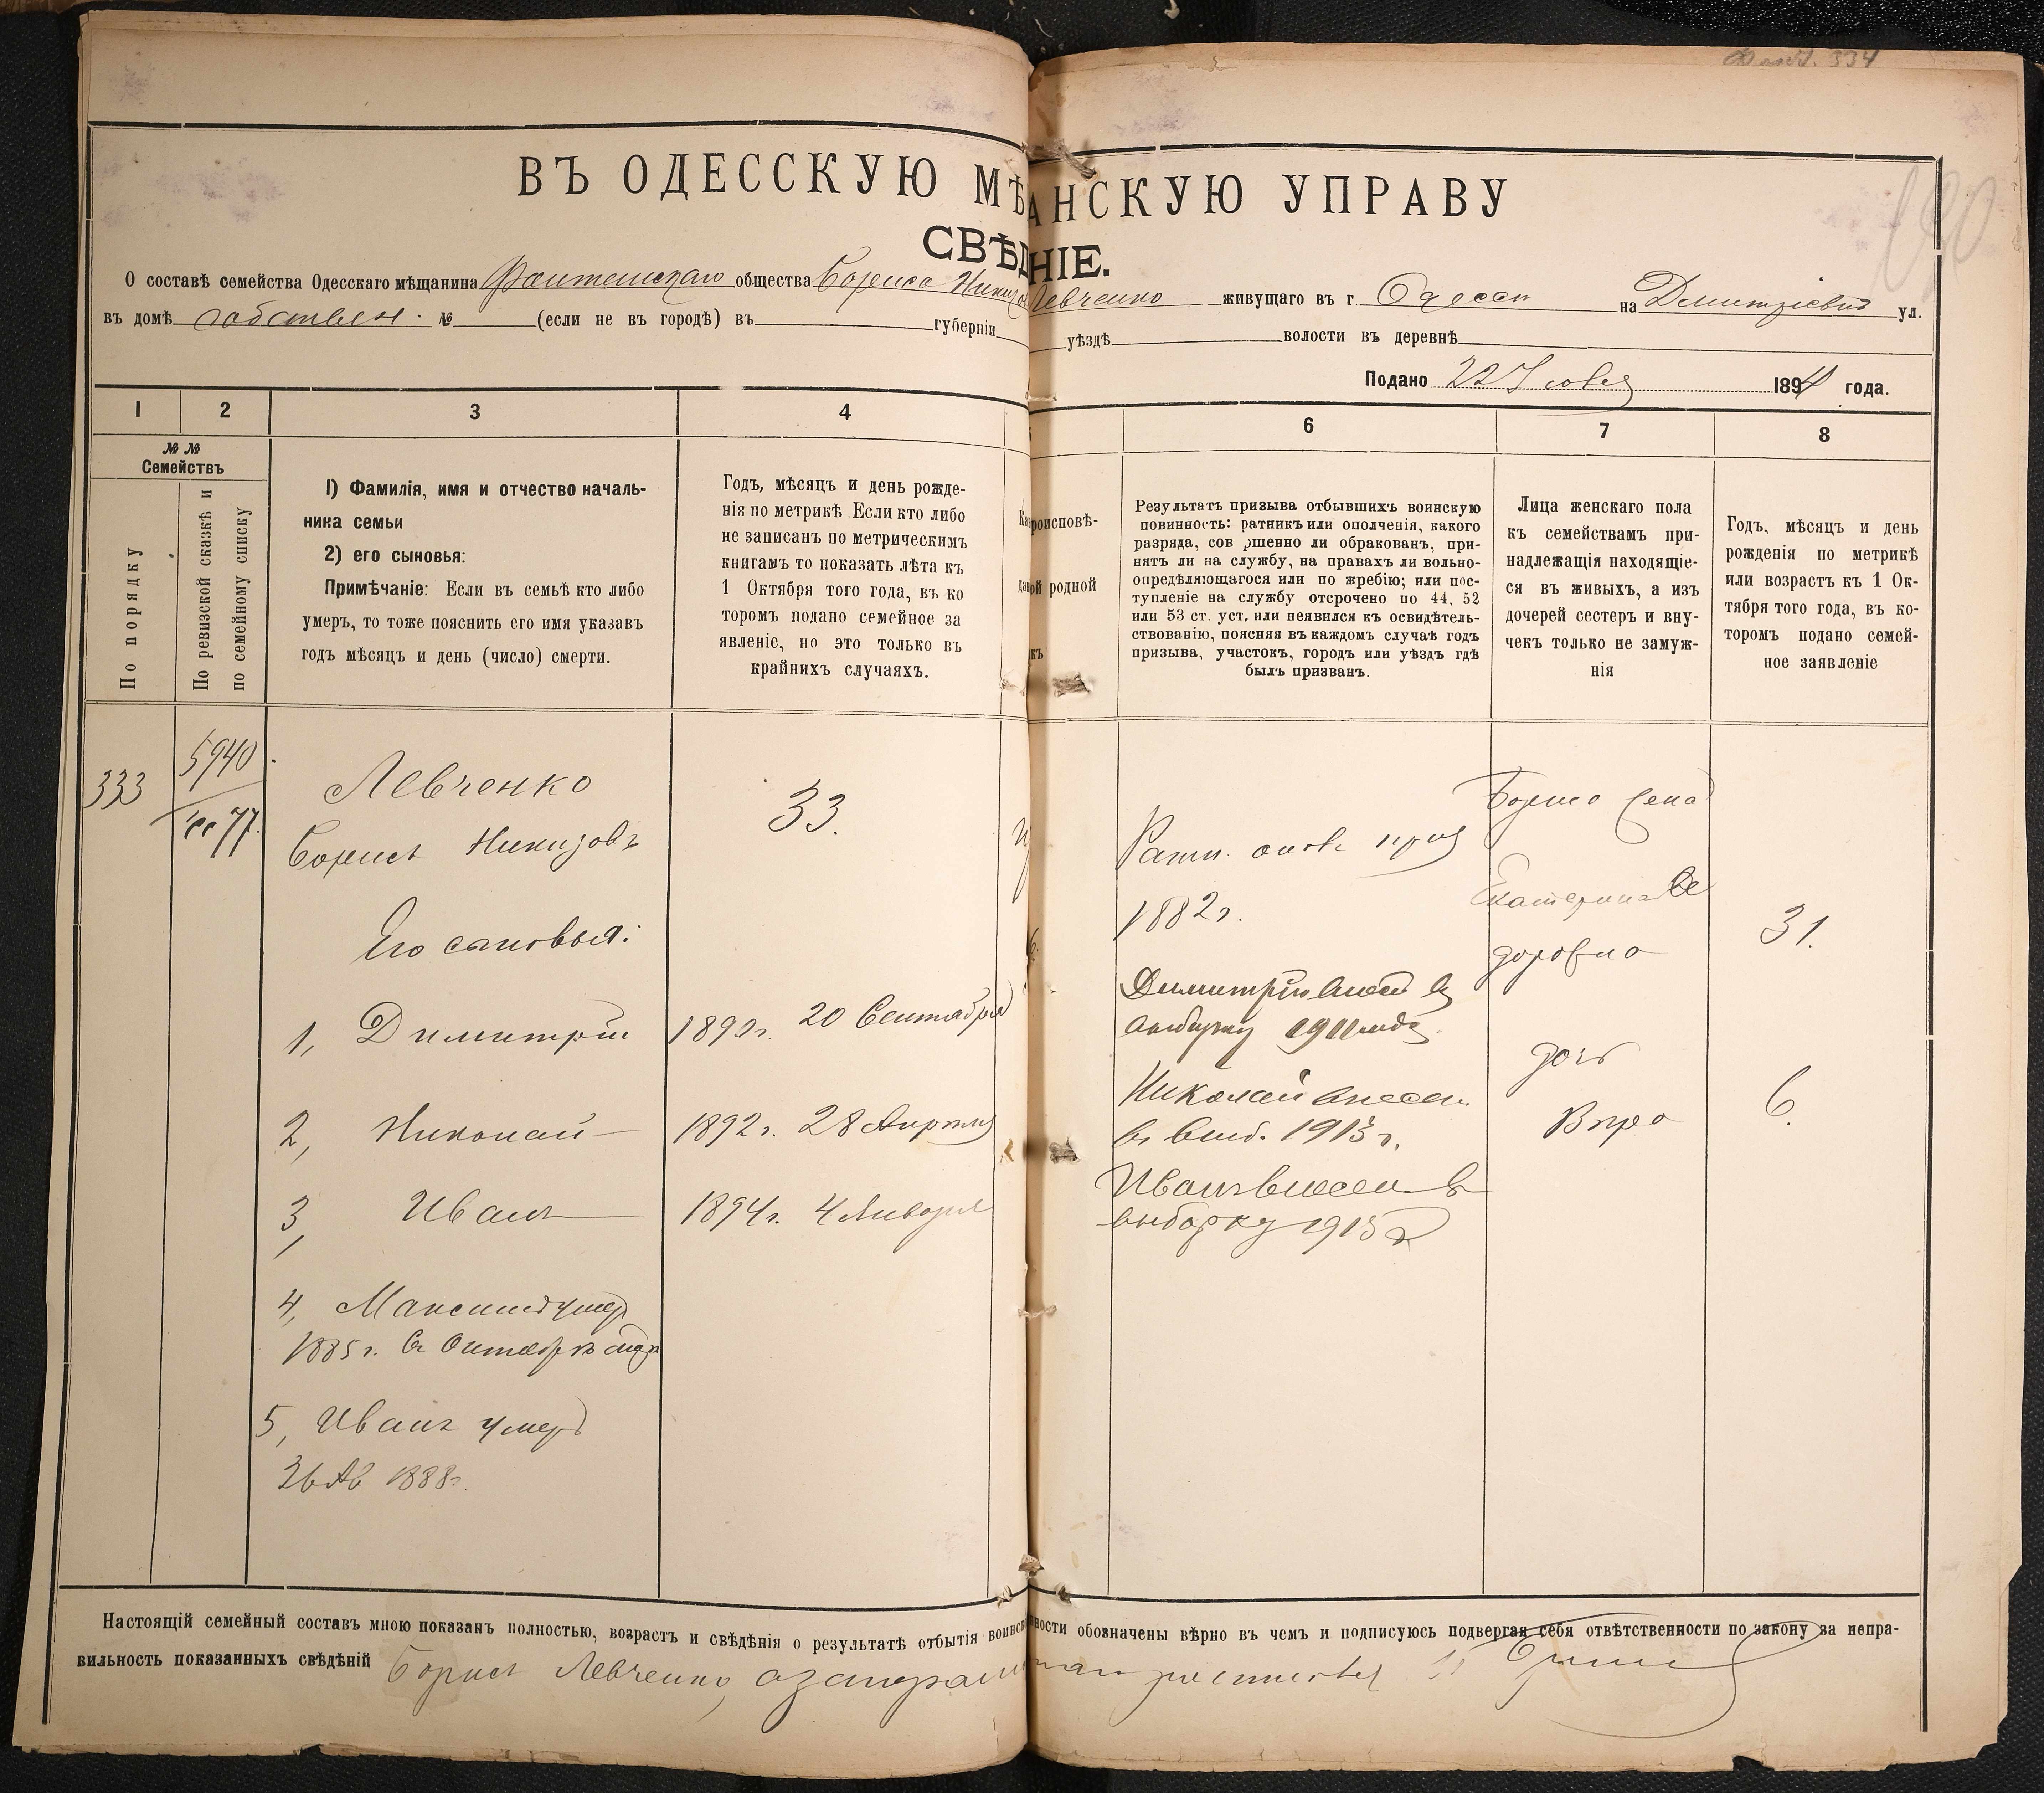 334
ВЪ ОДЕССКУЮ МѢ АНСКУЮ УПРАВУ
СВѢД НІЕ.
О составѣ семейства Одесскаго мѣщанина Фонтанскаго общества Бориса Левченко живущаго въ г. Одессѣ на ул.
въ домѣ собствен. № (если не въ городѣ) въ губерніи уѣздѣ волости въ деревнѣ
Подано 22 1894 года.
1 2 3 4 6 7 8
№ №
Семействъ
По порядку
По ревизской сказкѣ и
по семейному списку
1) Фамилія, имя и отчество началь-
ника семьи
2) его сыновья:
Примѣчаніе: Если въ семьѣ кто либо
умеръ, то тоже пояснить его имя указавъ
годъ мѣсяцъ и день (число) смерти.
Годъ, мѣсяцъ и день рожде-
нія по метрикѣ. Если кто либо
не записанъ по метрическимъ
книгамъ то показать лѣта къ
1 Октября того года, въ ко
торомъ подано семейное за
явленіе, но это только въ
крайнихъ случаяхъ.
роисповѣ-
ой родной
Результатъ призыва отбывшихъ воинскую
повинность: ратникъ или ополченія, какого
разряда, сов ршенно ли обракованъ, при-
нятъ ли на службу, на правахъ ли вольно-
опредѣляющагося или по жребію; или пос-
тупленіе на службу отсрочено по 44, 52
или 53 ст. уст, или неявился къ освидѣтель-
ствованію, поясняя въ каждомъ случаѣ годъ
призыва, участокъ, городъ или уѣздъ гдѣ
былъ призванъ.
Лица женскаго пола
къ семействамъ при-
надлежащія находящіе-
ся въ живыхъ, а изъ
дочерей сестеръ и вну-
чекъ только не замуж-
нія
Годъ, мѣсяцъ и день
рожденія по метрикѣ
или возрастъ къ 1 Ок-
тября того года, въ ко-
торомъ подано семей-
ное заявленіе
333
5940
77.
Левченко
Борисъ
33.
Ратн. опол.
1882 г.
Бориса жена
Екатерина Ѳе
доровна
31.
Его сыновья:
1, Димитрій 1890 г. 20 Сентября
Димитрій внесенъ въ
выборку 1911 года
дочь
Вѣра
6.
2, Николай 1892 г. 28 Апрѣля
Николай внесен
въ выб. 1913 г.
3, Иванъ 1894 г. 4 Января
Иванъ внесен в
выборку 1915 г
4, Максимъ умеръ
1885 г. въ Октябрѣ
5, Иванъ умеръ
1888 г.
Настоящій семейный составъ мною показанъ полностью, возрастъ и свѣдѣнія о результатѣ отбытія воинск ности обозначены вѣрно въ чемъ и подписуюсь подвергая себя отвѣтственности по закону за непра-
вильность показанныхъ свѣдѣній Борисъ Левченко,